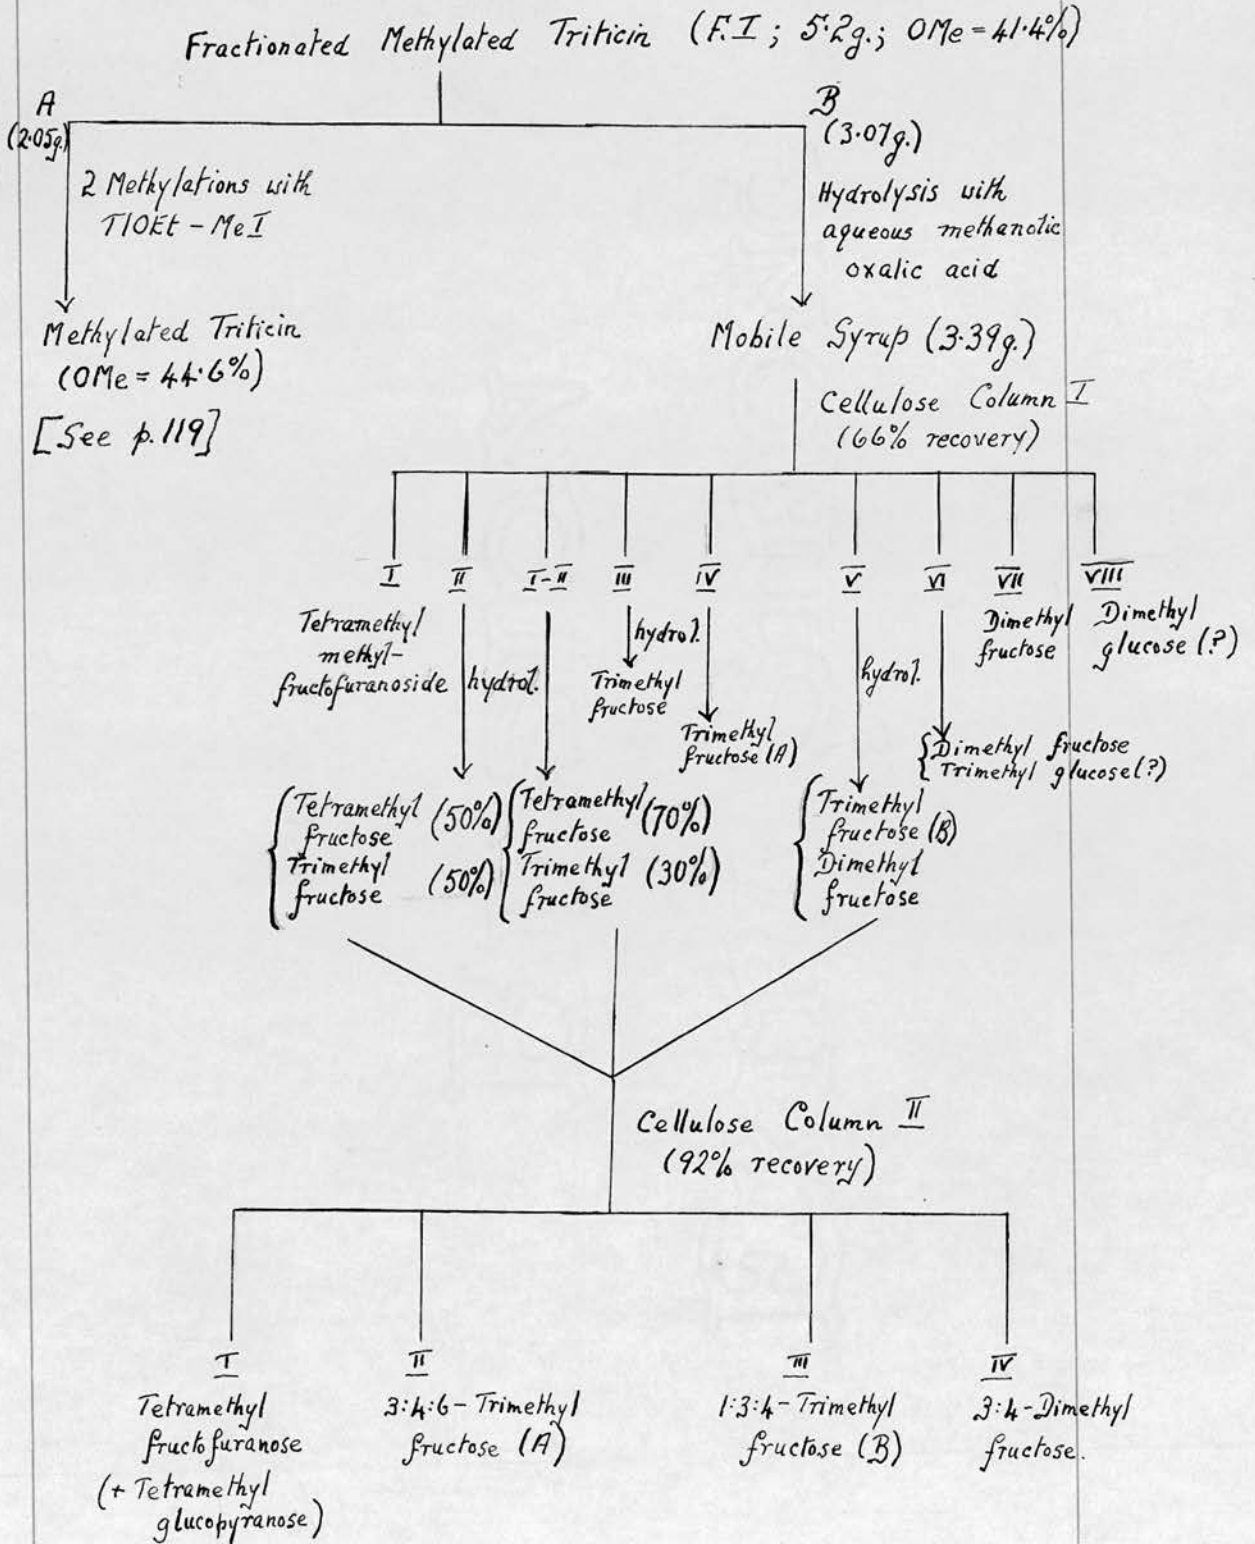 Fractionated Methylated Triticin (F.I ; 5·2g.; OMe = 41·4%)
A
(2·05g.)
2 Methylations with
TlOEt - MeI
Methylated Triticin
(OMe = 44·6%)
[See p.119]
B
(3·07g.)
Hydrolysis with
aqueous methanolic
oxalic acid
Mobile Syrup (3·39g.)
Cellulose Column I
(66% recovery)
I
Tetramethyl
methyl-
fructofuranoside
II
hydrol.
Tetramethyl (50%)
fructose
Trimethyl (50%)
fructose
I-II
Tetramethyl (70%)
fructose
Trimethyl (30%)
fructose
III
hydrol.
Trimethyl
fructose
IV
Trimethyl
fructose (A)
V
hydrol.
Trimethyl
fructose (B)
Dimethyl
fructose
VI
Dimethyl fructose
Trimethyl glucose (?)
VII
Dimethyl
fructose
VIII
Dimethyl
glucose (?)
Cellulose Column II
(92% recovery)
I
Tetramethyl
fructofuranose
(+ Tetramethyl
glucopyranose)
II
3:4:6 - Trimethyl
fructose (A)
III
1:3:4 - Trimethyl
fructose (B)
IV
3:4-Dimethyl
fructose.